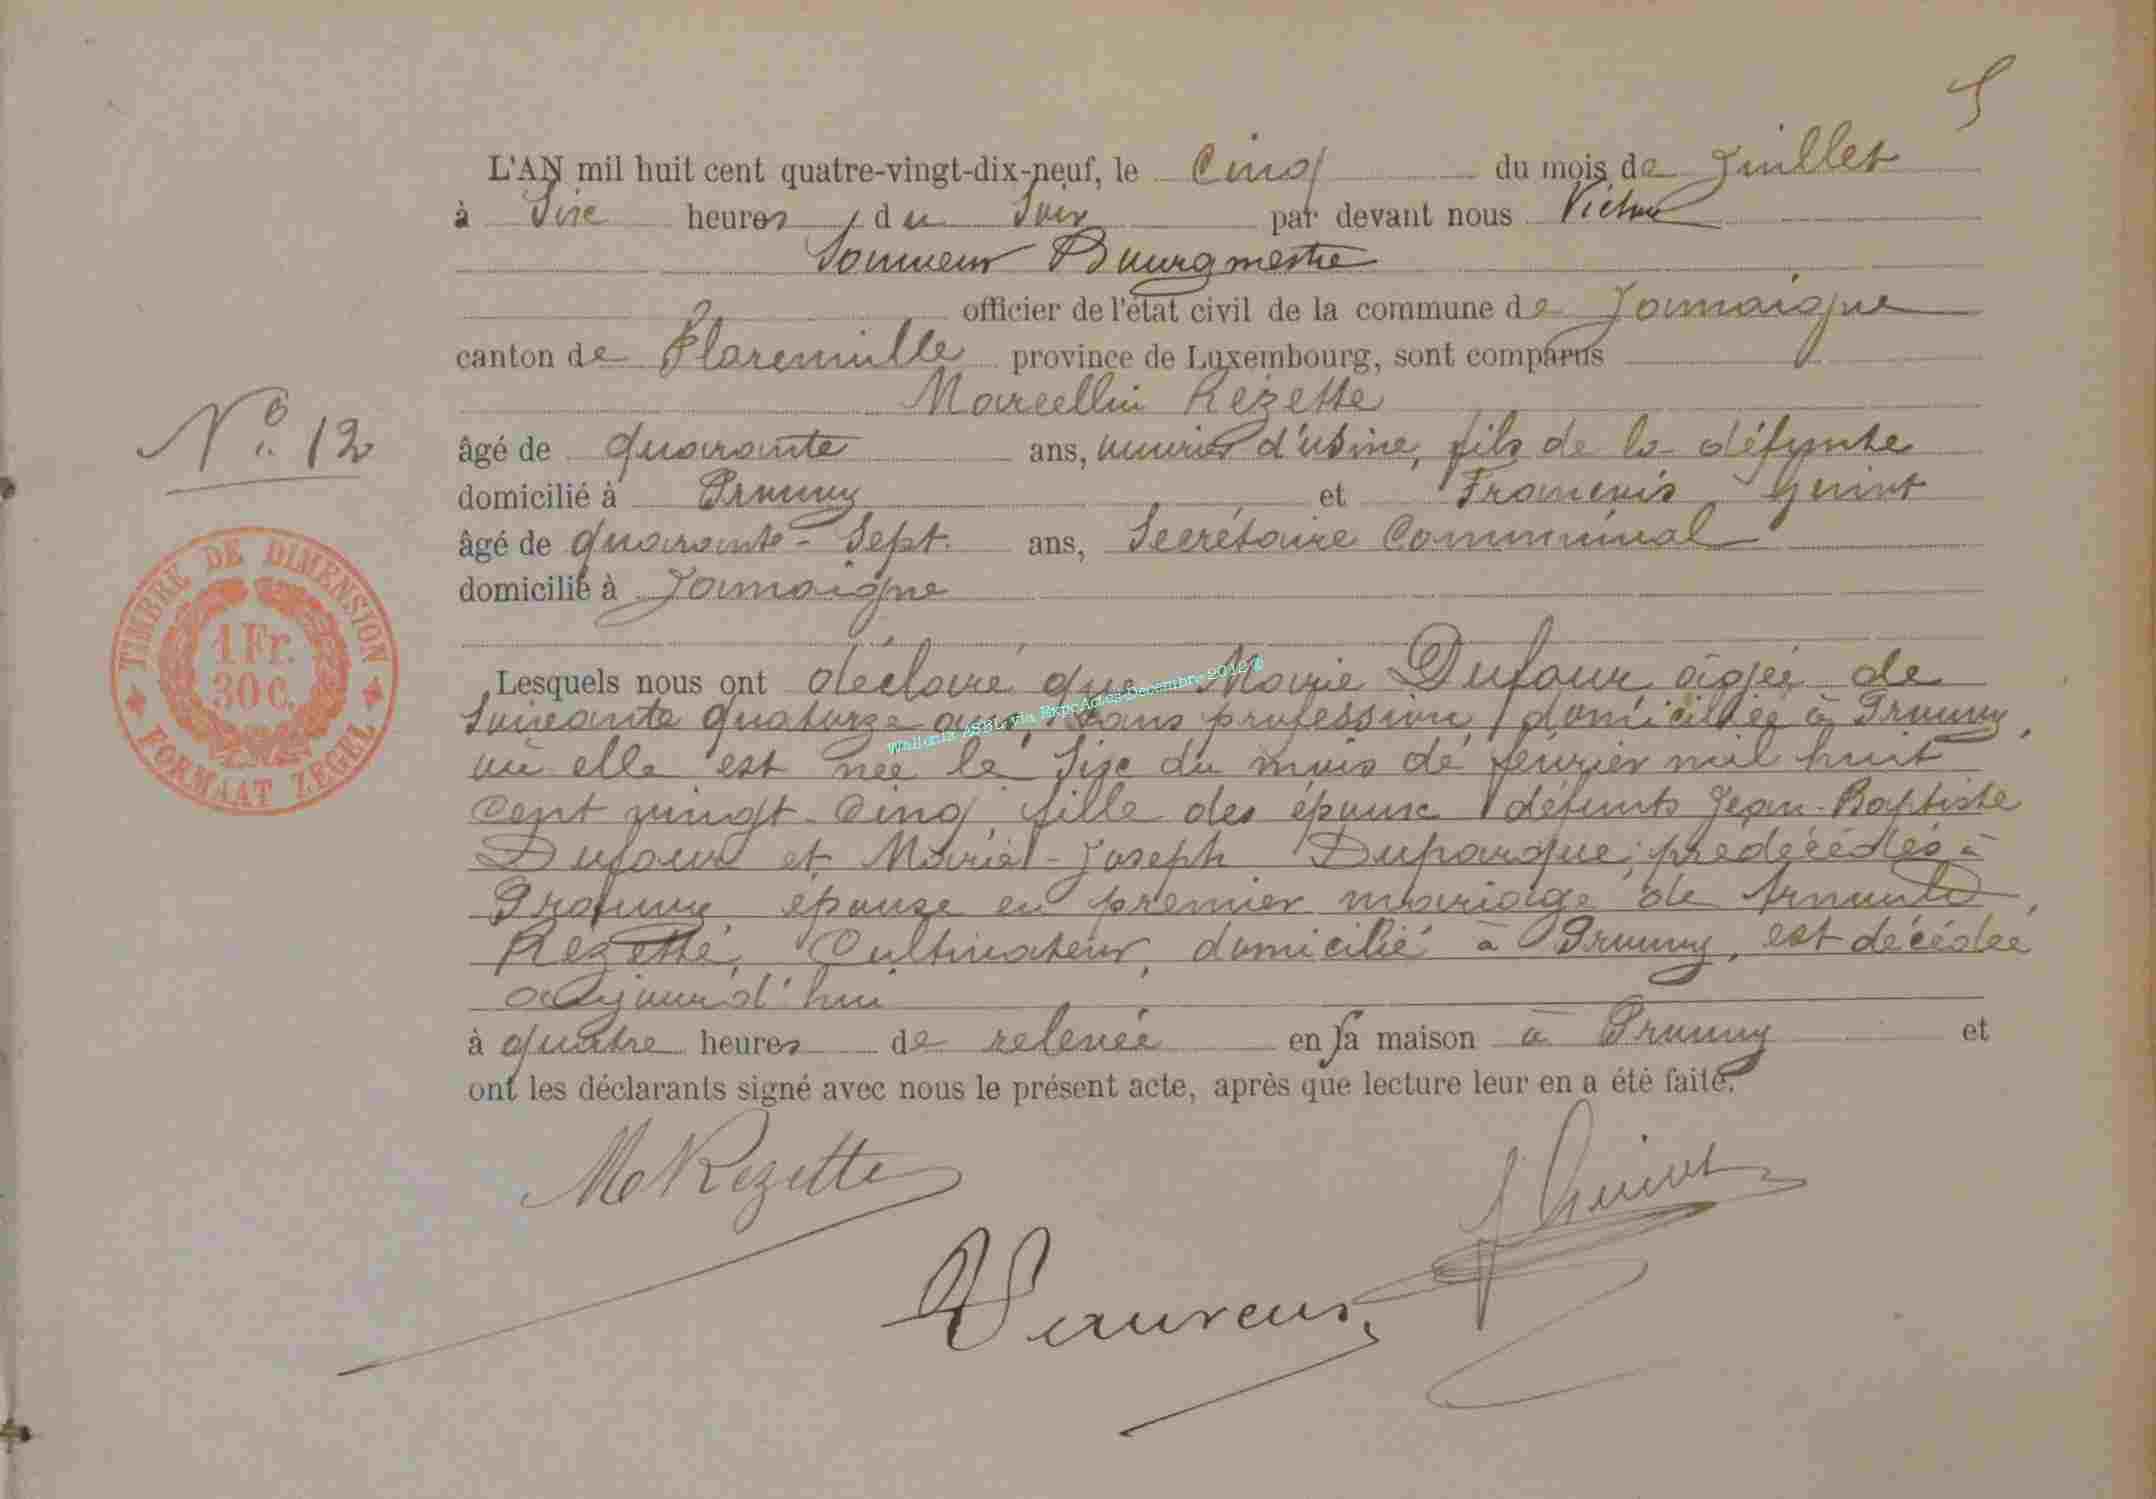 5
L'AN mil huit cent quatre-vingt-dix-neuf, le Cinq du mois de Juillet
à Six heures du Soir par devant nous Victor
Bourgmestre
officier de l'état civil de la commune de Jamoigne
canton de Florenville province de Luxembourg, sont comparus
Marcellin Rezette
N° 12
âgé de quarante ans, ouvrier d'usine, fils de la défunte
domicilié à Prouvy et François Guiot
âgé de quarante-Sept ans, Secrétaire Communal
domicilié à Jamoigne
TIMBRE DE DIMENSION
1 Fr.
30 c.
FORMAAT ZEGEL
Lesquels nous ont déclaré que Marie Dufour âgée de
Soixante quatorze ans, sans profession, domiciliée à Prouvy,
où elle est née le Six du mois de février mil huit
cent vingt-Cinq, fille des époux défunts Jean-Baptiste
Dufour et Marie-Joseph Duparque, prédécédés à
Prouvy épouse en premier mariage de Arnould
Rezette, Cultivateur, domicilié à Prouvy, est décédée
aujourd'hui
à quatre heures de relevée en sa maison à Prouvy et
ont les déclarants signé avec nous le présent acte, après que lecture leur en a été faite.
Wallonia ASBL via ExpoActes Decembre 2012 ©
M Rezette
J Guiot